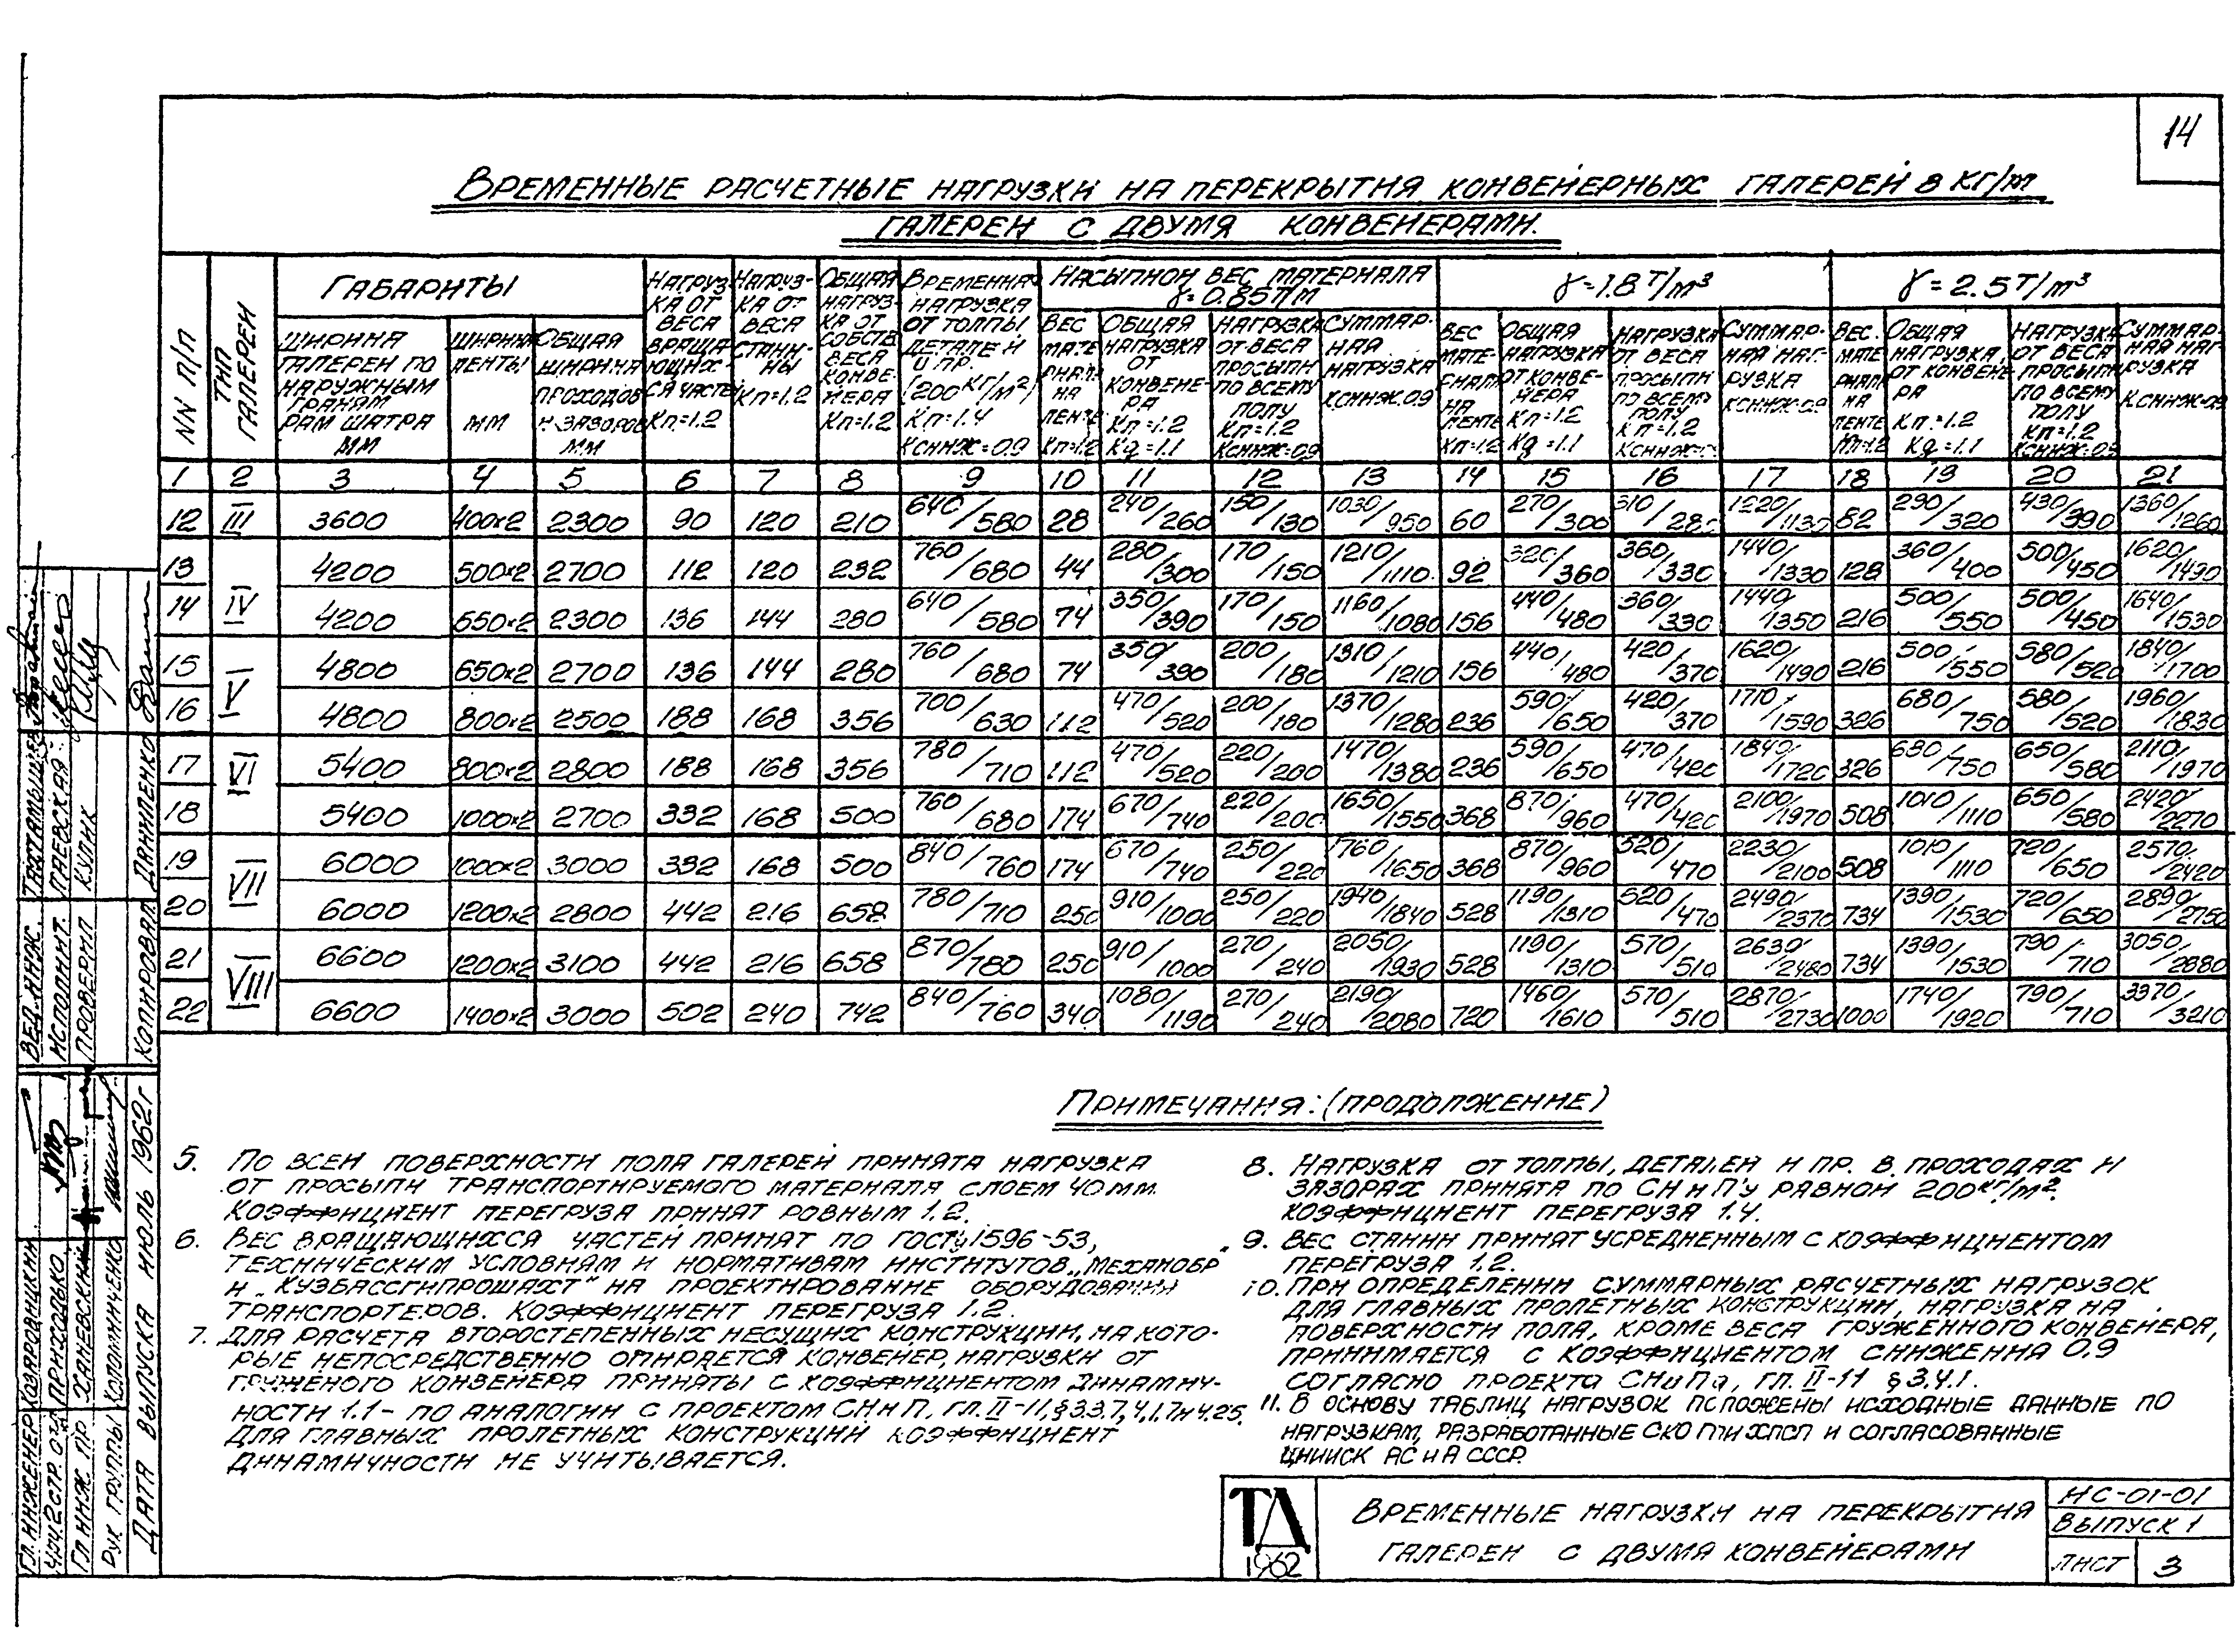 14
Временные расчетные нагрузки на перекрытия конвейерных галерей в кг/м
галереи с двумя конвейерами.
NN п/п
Тип галереи
Габариты
Ширина галереи по наружным граням рам шатра мм
Ширина ленты мм
Общая ширина проходов и зазоров мм
Нагрузка от веса вращающихся частей Кп=1.2
Нагрузка от веса станины Кп=1.2
Общая нагрузка от собств. веса конвейера Кп=1.2
Временная нагрузка от толпы деталей и пр. (200 кг/м²) Кп=1.4 Ксниж=0.9
Насыпной вес материала γ=0.85т/м
Вес материала на ленте Кп=1.2
Общая нагрузка от конвейера Кп=1.2 Кд=1.1
Нагрузка от веса просыпи по всему полу Кп=1.2 Ксниж=0,9
Суммарная нагрузка Ксниж=0.9
γ=1.8 т/м³
Вес материала на ленте Кп=1.2
Общая нагрузка от конвейера Кп=1.2 Кд=1.1
Нагрузка от веса просыпи по всему полу Кп=1.2
Суммарная нагрузка Ксниж=0.9
γ=2.5 т/м³
Вес. материала на ленте Кп=1.2
Общая нагрузка, от конвейера Кп.=1.2 Кд=1.1
Нагрузка от веса просыпи по всему полу Кп=1.2 Ксниж=0.9
Суммарная нагрузка Ксниж=0.9
1 2 3 4 5 6 7 8 9 10 11 12 13 14 15 16 17 18 19 20 21
12 III 3600 400×2 2300 90 120 210 640/580 28 240/260 150/130 1030/950 60 270/300 310/280 1220/1130 82 290/320 430/390 1360/1260
13 IV 4200 500×2 2700 112 120 232 760/680 44 280/300 170/150 1210/1110 92 320/360 360/330 1440/1330 128 360/400 500/450 1620/1490
14 4200 650×2 2300 136 144 280 640/580 74 350/390 170/150 1160/1080 156 440/480 360/330 1440/1350 216 500/550 500/450 1640/1530
15 V 4800 650×2 2700 136 144 280 760/680 74 350/390 200/180 1310/1210 156 440/480 420/370 1620/1490 216 500/550 580/520 1840/1700
16 4800 800×2 2500 188 168 356 700/630 112 470/520 200/180 1370/1280 236 590/650 420/370 1710/1590 326 680/750 580/520 1960/1830
17 VI 5400 800×2 2800 188 168 356 780/710 112 470/520 220/200 1470/1380 236 590/650 470/420 1840/1720 326 680/750 650/580 2110/1970
18 5400 1000×2 2700 332 168 500 760/680 174 670/740 220/200 1650/1550 368 870/960 470/420 2100/1970 508 1010/1110 650/580 2420/2270
19 VII 6000 1000×2 3000 332 168 500 840/760 174 670/740 250/220 1760/1650 368 870/960 520/470 2230/2100 508 1010/1110 720/650 2570/2420
20 6000 1200×2 2800 442 216 658 780/710 250 910/1000 250/220 1940/1840 528 1190/1310 520/470 2490/2370 734 1390/1530 720/650 2890/2750
21 VIII 6600 1200×2 3100 442 216 658 870/780 250 910/1000 270/240 2050/1930 528 1190/1310 570/510 2630/2480 734 1390/1530 790/710 3050/2880
22 6600 1400×2 3000 502 240 742 840/760 340 1080/1190 270/240 2190/2080 720 1460/1610 570/510 2870/2730 1000 1740/1920 790/710 3370/3210
Примечания: (продолжение)
5. По всей поверхности пола галерей принята нагрузка
от просыпи транспортируемого материала слоем 40 мм.
Коэффициент перегруза принят ровным 1.2.
6. Вес вращающихся частей принят по ГОСТу 1596-53,
техническим условиям и нормативам институтов „Механобр"
и „Кузбассгипрошахт" на проектирование оборудования
транспортеров. Коэффициент перегруза 1.2.
7. Для расчета второстепенных несущих конструкций, на кото-
рые непосредственно опирается конвейер, нагрузки от
груженого конвейера приняты с коэффициентом динамич-
ности 1.1 - по аналогии с проектом СНиП. гл. II-11, § 3.3.7, 4.1.7 и 4.25.
Для главных пролетных конструкций коэффициент
динамичности не учитывается.
8. Нагрузка от толпы, деталей и пр. в проходах и
зазорах принята по СНиП'у равной 200 кг/м².
Коэффициент перегруза 1.4.
9. Вес станин принят усредненным с коэффициентом
перегруза 1.2.
10. При определении суммарных расчетных нагрузок
для главных пролетных конструкций, нагрузка на
поверхности пола, кроме веса груженного конвейера,
принимается с коэффициентом снижения 0.9
согласно проекта СНиПа, гл. II-11 § 3.4.1.
11. В основу таблиц нагрузок положены исходные данные по
нагрузкам, разработанные СКО ПТИ ХПСП и согласованные
ЦНИИСК АС и А СССР.
ТД
1962
Временные нагрузки на перекрытия
галереи с двумя конвейерами
ИС-01-01
Выпуск 1
Лист 3
Вед. инж.
Исполнит. Лаевская
Проверил Кулик
Копировал Данипенко
Гл. инженер Козяровицкий
Приходько
Гл. инж. пр. Ханевский
Рук. группы Коломниченко
Дата выпуска июль 1962г